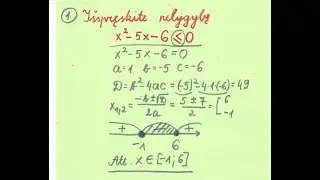 1. Išspręskite nelygybę
x²-5x-6 ≤ 0
x²-5x-6=0
a=1 b=-5 c=-6
D=b²-4ac=(-5)²-4·1·(-6)=49
x₁,₂ = (-b±√D)/2a = (5±7)/2 = [6 -1
+ - +
-1 6
Ats. x∈[-1;6]